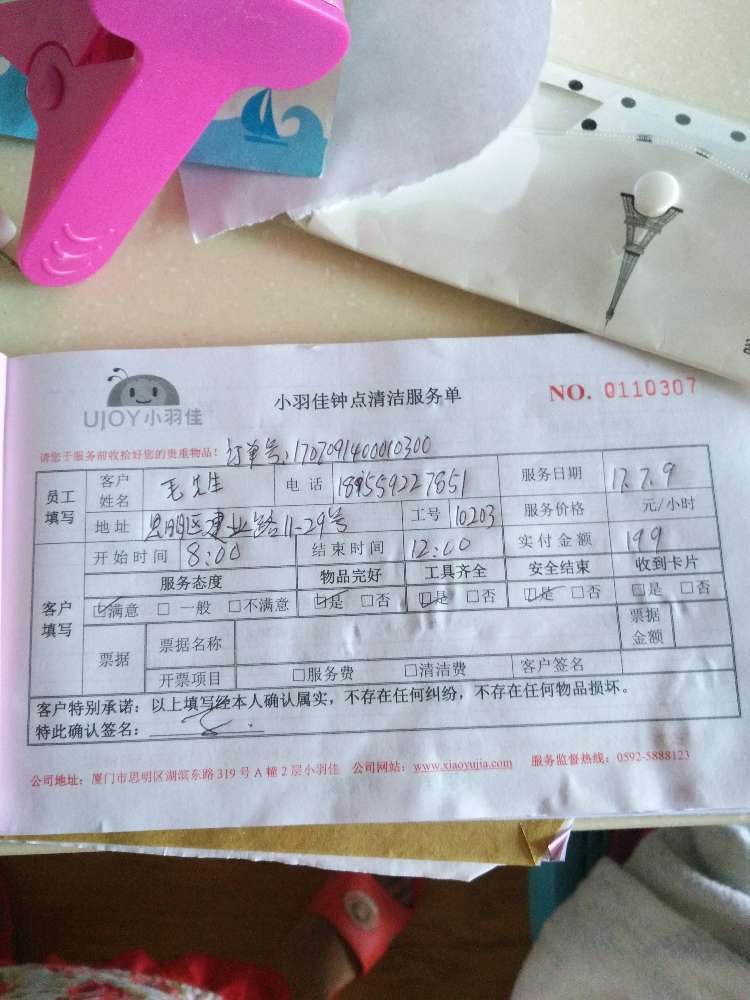 UJOY小羽佳
小羽佳钟点清洁服务单
NO. 0110307
请您于服务前收拾好您的贵重物品! 订单号:1707091400010300
员工填写 客户姓名 毛先生 电话 189559227851 服务日期 17.7.9
地址 思明区建业路11-29号 工号 10203 服务价格 元/小时
客户填写 开始时间 8:00 结束时间 12:00 实付金额 199
服务态度 物品完好 工具齐全 安全结束 收到卡片
☑满意 □一般 □不满意 ☑是 □否 ☑是 □否 ☑是 □否 ☑是 □否
票据 票据名称 票据金额
开票项目 □服务费 □清洁费 客户签名
客户特别承诺:以上填写经本人确认属实,不存在任何纠纷,不存在任何物品损坏。
特此确认签名:
公司地址:厦门市思明区湖滨东路319号A幢2层小羽佳 公司网站:www.xiaoyujia.com 服务监督热线:0592-5888123